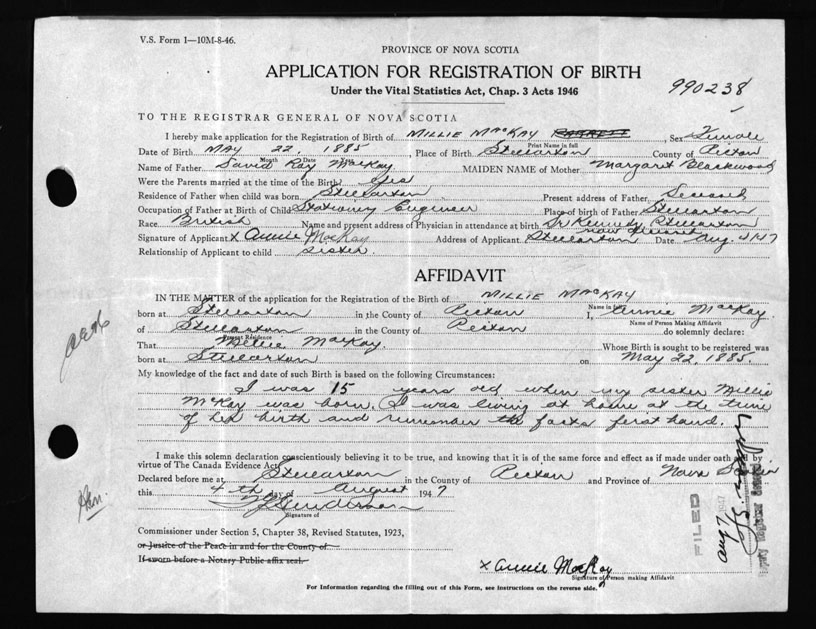 V.S. Form 1—10M-8-46.
PROVINCE OF NOVA SCOTIA
APPLICATION FOR REGISTRATION OF BIRTH
Under the Vital Statistics Act, Chap. 3 Acts 1946
990238
TO THE REGISTRAR GENERAL OF NOVA SCOTIA
I hereby make application for the Registration of Birth of MILLIE MACKAY , Sex Female
Print Name in full
Date of Birth MAY 22, 1885 , Place of Birth Stellarton County of Pictou
Month Date Year
Name of Father David Kay MacKay MAIDEN NAME of Mother Margaret Blackwood
Were the Parents married at the time of the Birth? Yes
Residence of Father when child was born Stellarton Present address of Father Deceased
Occupation of Father at Birth of Child Stationary Engineer Place of birth of Father Stellarton
Race British Name and present address of Physician in attendance at birth Dr. Kennedy Stellarton
now deceased
Signature of Applicant x Annie MacKay Address of Applicant Stellarton Date Aug. 4/47
Relationship of Applicant to child sister.
AFFIDAVIT
IN THE MATTER of the application for the Registration of the Birth of MILLIE MACKAY
Name in full
born at Stellarton in the County of Pictou I, Annie MacKay
Name of Person Making Affidavit
of Stellarton in the County of Pictou do solemnly declare:
Present Residence
That Millie MacKay Whose Birth is sought to be registered was
born at Stellarton on May 22, 1885.
My knowledge of the fact and date of such Birth is based on the following Circumstances:
I was 15 years old when my sister Millie
McKay was born. I was living at home at the time
of her birth and remember the facts first hand.
I make this solemn declaration conscientiously believing it to be true, and knowing that it is of the same force and effect as if made under oath and by
virtue of The Canada Evidence Act
Declared before me at Stellarton in the County of Pictou and Province of Nova Scotia
this 4th day of August 1947
Signature of
Commissioner under Section 5, Chapter 38, Revised Statutes, 1923,
or Justice of the Peace in and for the County of
If sworn before a Notary Public affix seal.
x Annie MacKay
Signature of Person making Affidavit
For Information regarding the filling out of this Form, see instructions on the reverse side.
FILED
Aug 7 1947
Deputy Registrar General